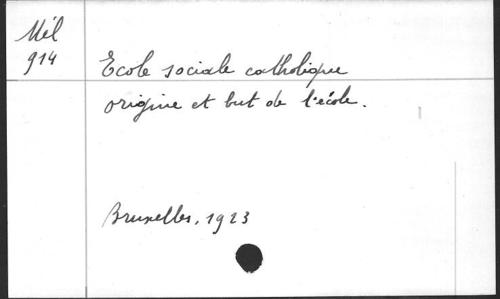 Mél
914
Ecole sociale catholique
origine et but de l'école.
Bruxelles, 1923